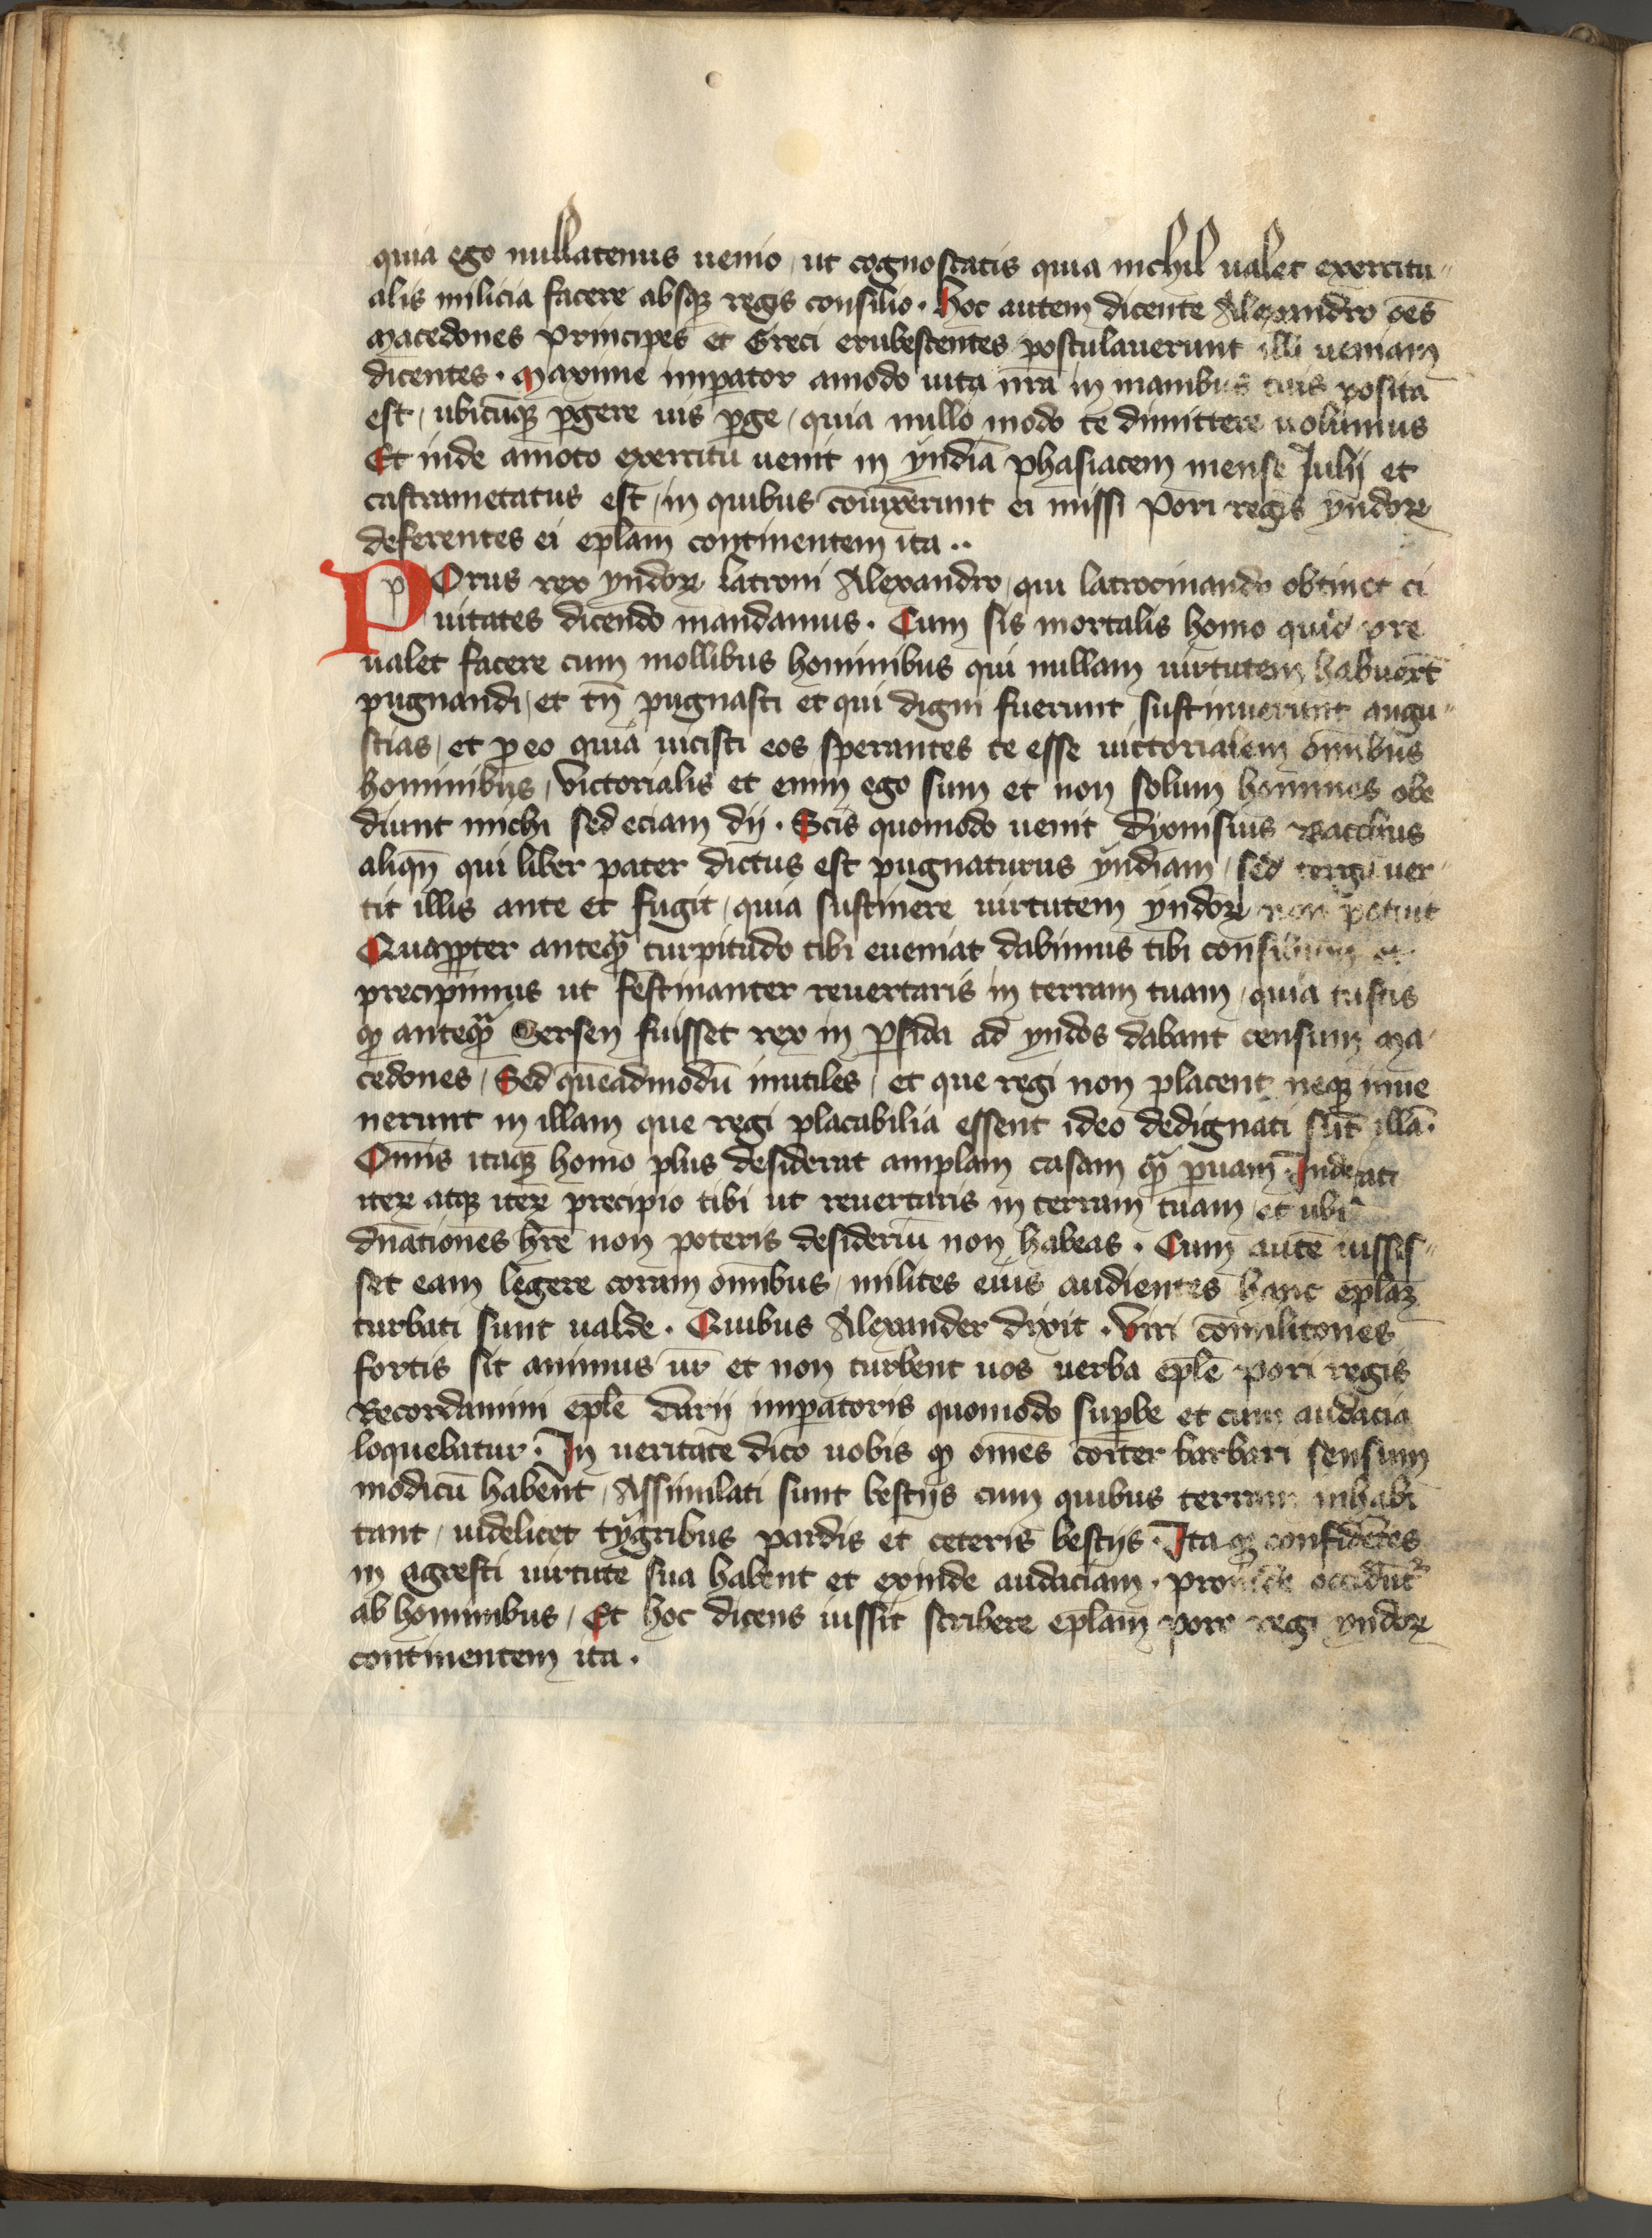 quia ego nullatenus uenio / ut cognoscatis quia nichil ualet exercitu-
alis milicia facere absqꝫ regis consilio . Hoc autem dicente Alexandro oēs
Macedones principes et Greci erubescentes postulauerunt illi ueniam
dicentes . Maxime imperator amodo uita nr̄a in manibus tuis posita
est / ubicūqꝫ ꝑgere uis ꝑge / quia nullo modo te dimittere uolumus
Et inde amoto exercitu uenit in yndiā phasiacem mense Julij et
castrametatus est / in quibus coniūxerunt ei missi Pori regis yndoꝝ
deferentes ei ep̄lam continentem ita ..
POrus rex yndoꝝ latroni Alexandro / qui latrocinando obtinet ci
uitates dicendo mandamus . Cum sis mortalis homo quid pre
ualet facere cum mollibus hominibus qui nullam uirtutem habuert̄
pugnandi / et tn̄ pugnasti et qui digni fuerunt sustinuerunt angu-
stias / et ꝓ eo quia uicisti eos sperantes te esse uictorialem om̄ibus
hominibus / Victorialis et enim ego sum et non solum homines obe
diunt michi sed eciam dij . Scis quomodo uenit Dyonisius Bacchus
aliqn̄ qui liber pater dictus est pugnaturus yndiam / sed terga uer-
tit illis ante et fugit / quia sustinere uirtutem yndoꝝ non potuit
Quapꝓter anteqͣ̄ turpitudo tibi eueniat dabimus tibi consilium et
precipimus ut festinanter reuertaris in terram tuam / quia
ꝙ anteqͣ̄ Serseη fuisset rex in ꝑsida ad yndos dabant censum Ma-
cedones / Sed quēadmodū inutiles / et que regi non placent neqꝫ inue
nerunt in illam que regi placabilia essent ideo dedignati sūt illā .
Om̄is itaqꝫ homo plus desiderat amplam casam qͣ̄ ꝑuam . Inde
iteꝝ atqꝫ iteꝝ precipio tibi ut reuertaris in terram tuam / et ubi
dn̄ationes hr̄e non poteris desideriū non habeas . Cum autē iussis-
set eam legere coram om̄ibus / milites eius audientes hanc ep̄laꝫ
turbati sunt ualde . Quibus Alexander dixit . Viri cōmilitones
fortis sit animus ur̄ et non turbent uos uerba ep̄le Pori regis
Recordamini ep̄le Darij imꝑatoris quomodo suꝑbe et cum audacia
loquebatur . In ueritate dico uobis ꝙ om̄es coīter barbari sensum
modicū habent / Assimilati sunt bestijs cum quibus terram inhabi
tant / uidelicet tygribus pardis et ceteris bestijs . Ita ꝙ confidētes
in agresti uirtute sua habent et exinde audaciam . proinde occidūtᷣ
ab hominibus / Et hoc dicens iussit scribere ep̄lam Poro regi yndoꝝ
continentem ita .